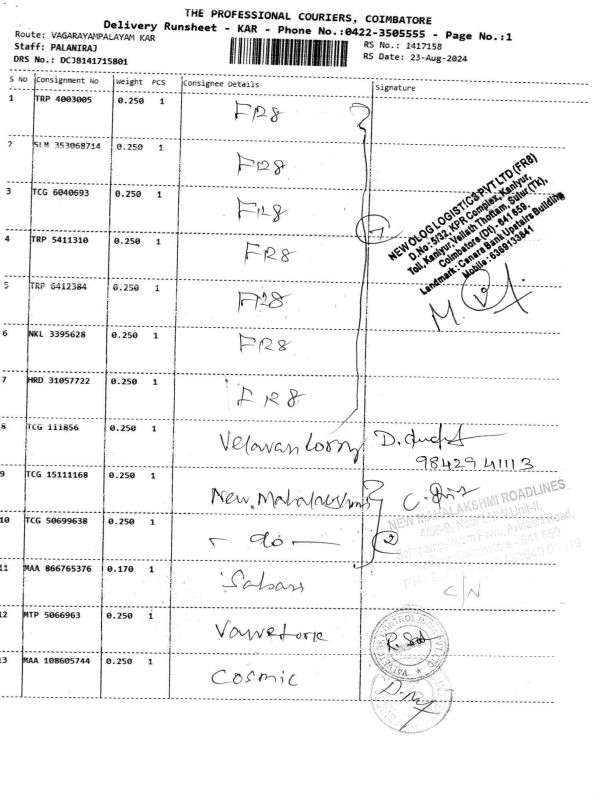 THE PROFESSIONAL COURIERS, COIMBATORE
Delivery Runsheet - KAR - Phone No.:0422-3505555 - Page No.:1
Route: VAGARAYAMPALAYAM KAR
RS No.: 1417158
Staff: PALANIRAJ
RS Date: 23-Aug-2024
DRS No.: DCJB141715801
S No Consignment No Weight PCS Consignee Details Signature
1 TRP 4003005 0.250 1 FR8
2 SLM 353068714 0.250 1 FR8
3 TCG 6040693 0.250 1 FR8
7
4 TRP 5411310 0.250 1 FR8
5 TRP 6412384 0.250 1 FR8
6 NKL 3395628 0.250 1 FR8
7 HRD 31057722 0.250 1 FR8
NEW OLOG LOGISTICS PVT LTD (FR8)
D.No: 5/32, KPR Complex, Kaniyur,
Toll, Kaniyur, Vellath Thottam, Sulur (Tk),
Coimbatore (Dt) - 641 659.
Landmark: Canara Bank Upstairs Building
Mobile: 6369133841
8 TCG 111856 0.250 1 Velavan Lorry
98429 41113
9 TCG 15111168 0.250 1 New. Mahalakshmi
NEW MAHALAKSHMI ROADLINES
10 TCG 50699638 0.250 1 - do -
2
11 MAA 866765376 0.170 1
C/N
12 MTP 5066963 0.250 1
13 MAA 108605744 0.250 1 Cosmic